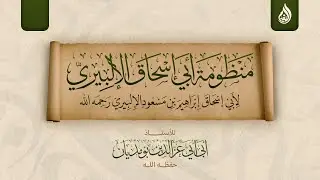 منظومة أبي إسحاق الإلبيري
لأبي إسحاق إبراهيم بن مسعود الإلبيري رحمه الله
للأستاذ
أبي أبي عز الدين بومدين
حفظه الله